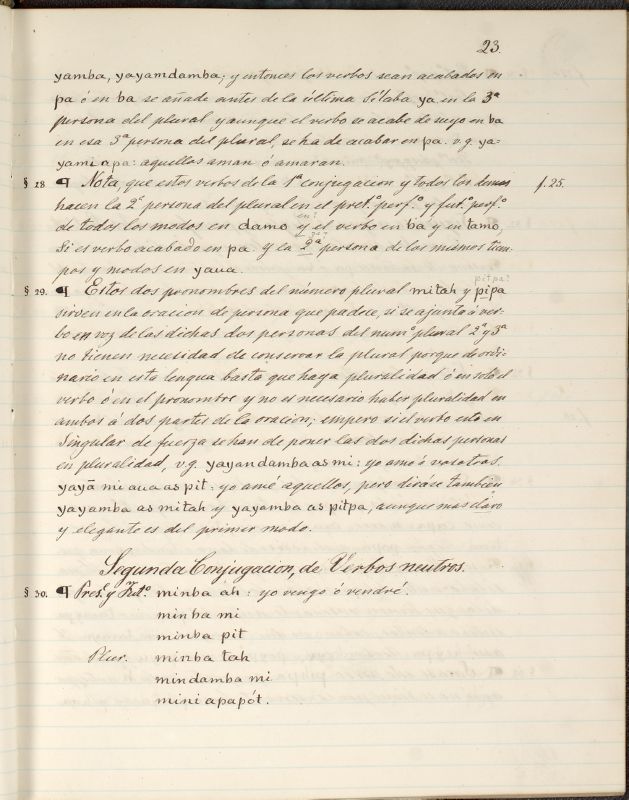 23.
yamba, yayamdamba; y entonces los verbos sean acabados en
pa ó en ba se añade antes de la última sílaba ya en la 3ª
persona del plural y aunque el verbo se acabe de suyo en ba
en esa 3ª persona del plural, se ha de acabar en pa. v.g. ya-
yami apa: aquellos aman ó amaran.
§ 28 ¶ Nota, que estos verbos de la 1ª conjugacion y todos los demas f. 25.
hacen la 2ª persona del plural en el pret.º perf.º y fut.º perf.º
en?
de todos los modos en damo y el verbo en ba y en tamo,
3ª?
Si es verbo acabado en pa y la 2ª persona de los mismos tiem-
pos y modos en yaua.
pitpa?
§ 29. ¶ Estos dos pronombres del número plural mitah y pipa
sirven en la oracion de persona que padece, si se ajunta á ver-
bo en voz de las dichas dos personas del num.º plural 2ª y 3ª
no tienen necesidad de conservar la plural porque de ordi-
nario en esta lengua basta que haya pluralidad ó en solo el
verbo ó en el pronombre y no es necesario haber pluralidad en
ambos á dos partes de la oracion; empero si el verbo esta en
Singular de fuerza se han de poner las dos dichas personas
en pluralidad, v.g. yayandamba as mi: yo amo á vosotros.
yayā mi aua as pit: yo amé aquellos, pero dirase tambien
yayamba as mitah y yayamba as pitpa, aunque mas claro
y elegante es del primer modo.
Segunda Conjugacion, de Verbos neutros.
§ 30. ¶ Pres.e y Fut.º minba ah: yo vengo ó vendré.
minba mi
minba pit
Plur. minba tah
mindamba mi
mini apapót.